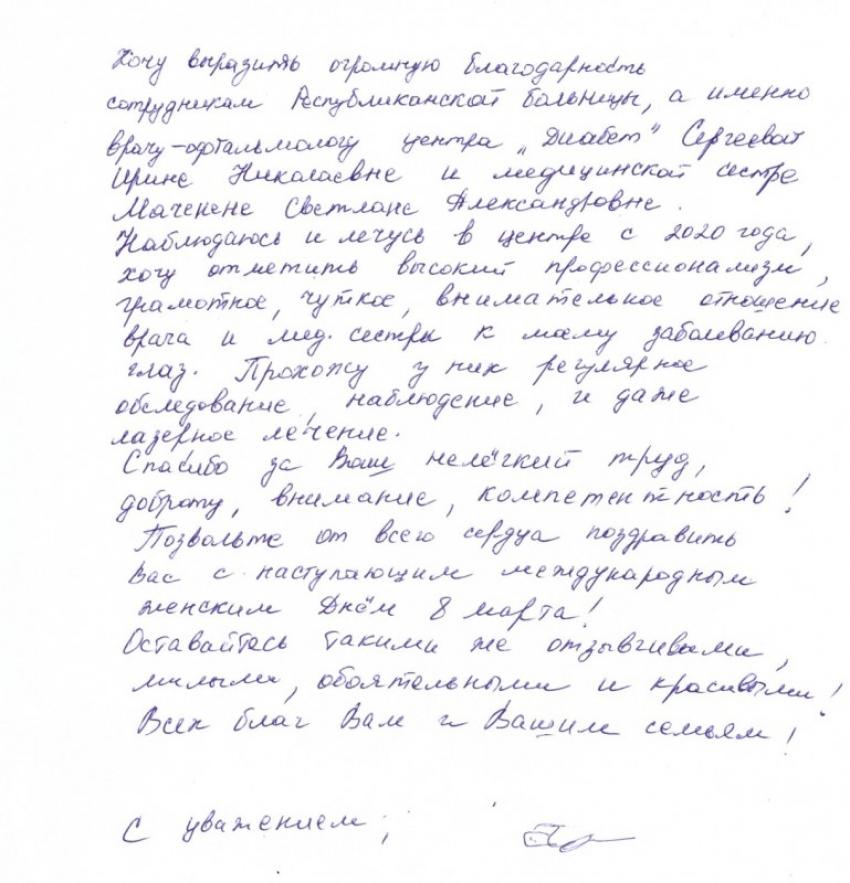 Хочу выразить огромную благодарность
сотрудникам Республиканской больницы, а именно
врачу-офтальмологу центра „Диабет" Сергеевой
Ирине Николаевне и медицинской сестре
Светлане Александровне.
Наблюдаюсь и лечусь в центре с 2020 года,
хочу отметить высокий профессионализм,
грамотное, чуткое, внимательное отношение
врача и мед. сестры к моему заболеванию
глаз. Прохожу у них регулярное
обследование, наблюдение, и даже
лазерное лечение.
Спасибо за Ваш нелёгкий труд,
доброту, внимание, компетентность!
Позвольте от всего сердца поздравить
Вас с наступающим международным
женским Днём 8 марта!
Оставайтесь такими же отзывчивыми,
милыми, обаятельными и красивыми!
Всех благ Вам и Вашим семьям!
С уважением,